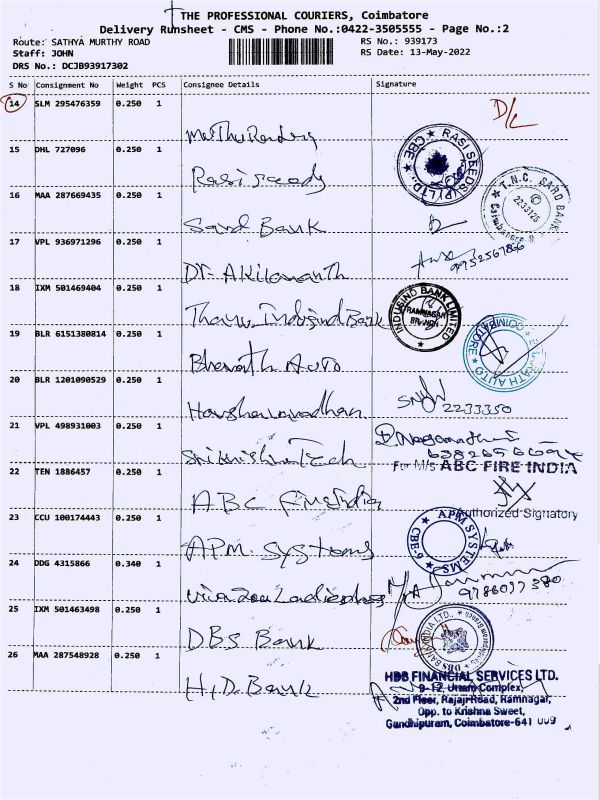 THE PROFESSIONAL COURIERS, Coimbatore
Delivery Runsheet - CMS - Phone No.:0422-3505555 - Page No.:2
Route: SATHYA MURTHY ROAD
RS No.: 939173
Staff: JOHN
RS Date: 13-May-2022
DRS No.: DCJB93917302
S No Consignment No Weight PCS Consignee Details Signature
14 SLM 295476359 0.250 1
D/L
15 DHL 727096 0.250 1
RASI SEEDS (P) LTD. CBE
16 MAA 287669435 0.250 1
T.N.C. SARD BANK
2233125
Sard Bank
17 VPL 936971296 0.250 1
9952567866
Dr. Akilananth
18 IXM 501469404 0.250 1
INDUSIND BANK LIMITED
RAMNAGAR BRANCH
Indusind Bank
19 BLR 6151380814 0.250 1
BHARATH AUTO COIMBATORE
Bharath Auto
20 BLR 1201090529 0.250 1
Harshavardhan
2233350
21 VPL 498931003 0.250 1
Srikrishna Tech
For M/s ABC FIRE INDIA
22 TEN 1886457 0.250 1
ABC
Authorized Signatory
23 CCU 100174443 0.250 1
APM SYSTEMS CBE-9
APM Systems
24 DDG 4315866 0.340 1
9786077380
25 IXM 501463498 0.250 1
DBS BANK INDIA LTD.
DBS Bank
26 MAA 287548928 0.250 1
HDB FINANCIAL SERVICES LTD.
9-12, Uttam Complex,
Bank
2nd Floor, Rajaji Road, Ramnagar,
Opp. to Krishna Sweet,
Gandhipuram, Coimbatore-641 009